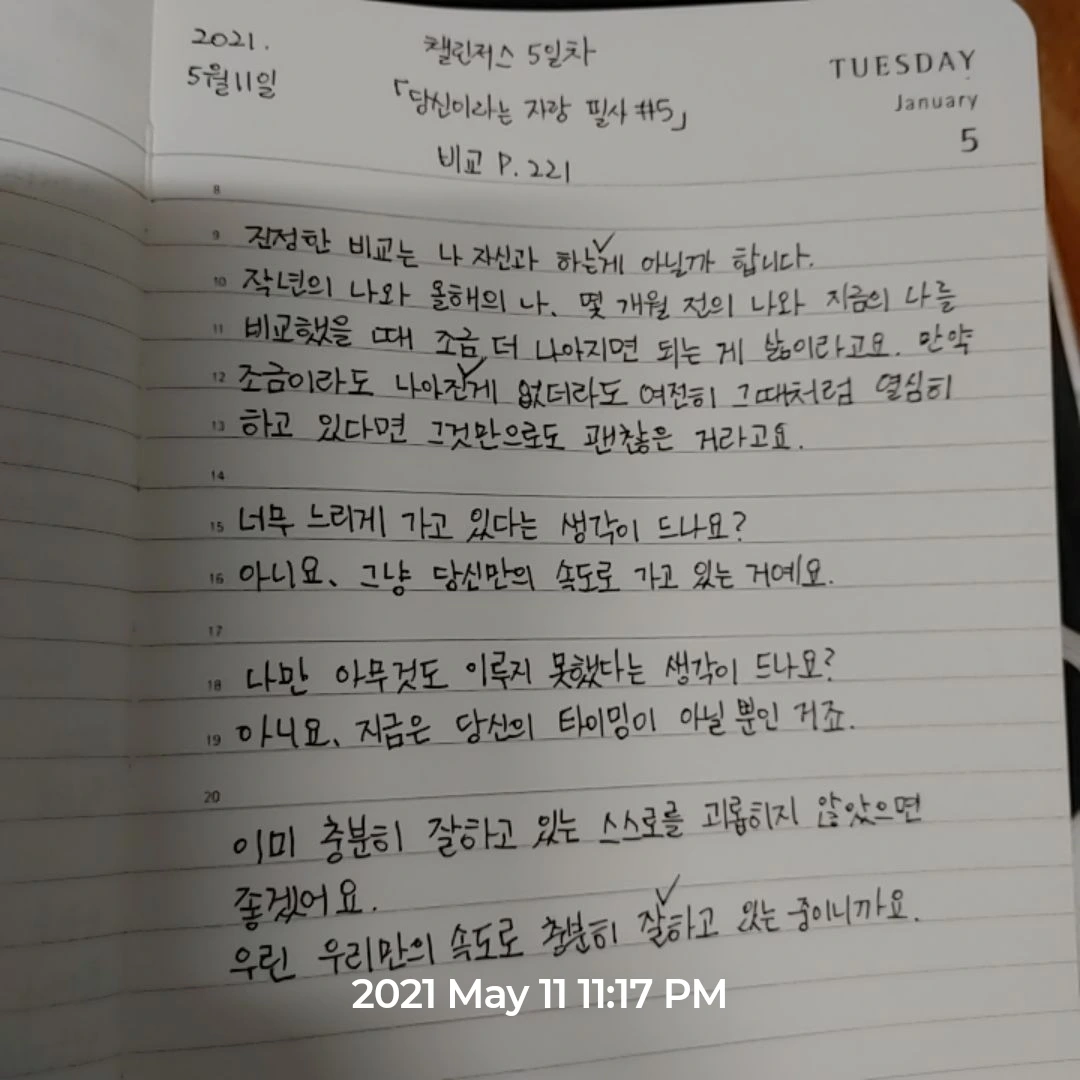 2021.
5월11일
챌린저스 5일차
「당신이라는 자랑 필사 #5」
비교 P. 221
TUESDAY
January
5
8
9 진정한 비교는 나 자신과 하는게 아닐까 합니다.
10 작년의 나와 올해의 나. 몇 개월 전의 나와 지금의 나를
11 비교했을 때 조금 더 나아지면 되는 게 삶이라고요. 만약
12 조금이라도 나아진게 없더라도 여전히 그때처럼 열심히
13 하고 있다면 그것만으로도 괜찮은 거라고요.
14
15 너무 느리게 가고 있다는 생각이 드나요?
16 아니요. 그냥 당신만의 속도로 가고 있는 거예요.
17
18 나만 아무것도 이루지 못했다는 생각이 드나요?
19 아니요. 지금은 당신의 타이밍이 아닐 뿐인 거죠.
20
이미 충분히 잘하고 있는 스스로를 괴롭히지 않았으면
좋겠어요.
우린 우리만의 속도로 충분히 잘하고 있는 중이니까요.
2021 May 11 11:17 PM